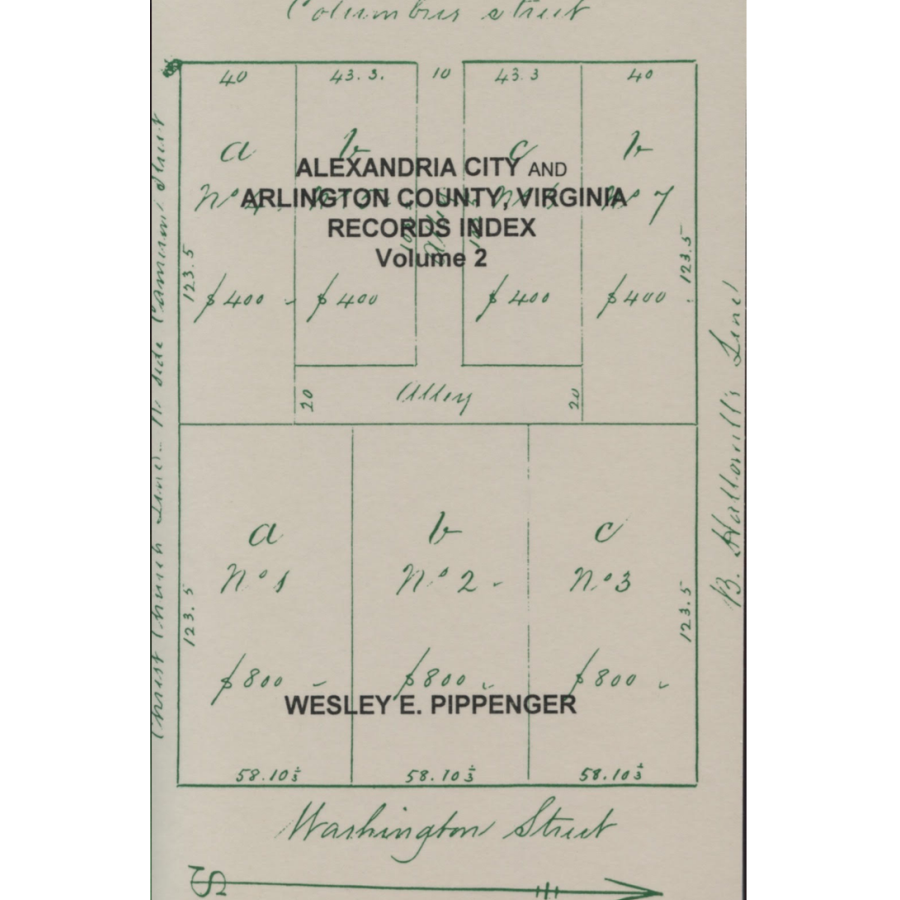 Columbus street
40 43.3. 10 43.3 40
a b c b
ALEXANDRIA CITY AND
ARLINGTON COUNTY, VIRGINIA
No 7
RECORDS INDEX
Volume 2
123.5 123.5
$400 $400 $400 $400
20 Alley 20
a b c
No 1 No 2 No 3
123.5 123.5
$800 $800 $800
WESLEY E. PIPPENGER
58.10⅓ 58.10⅓ 58.10⅓
Washington Street
S
Christ Church Line N side Cameron Street
B. Hallowell's Line